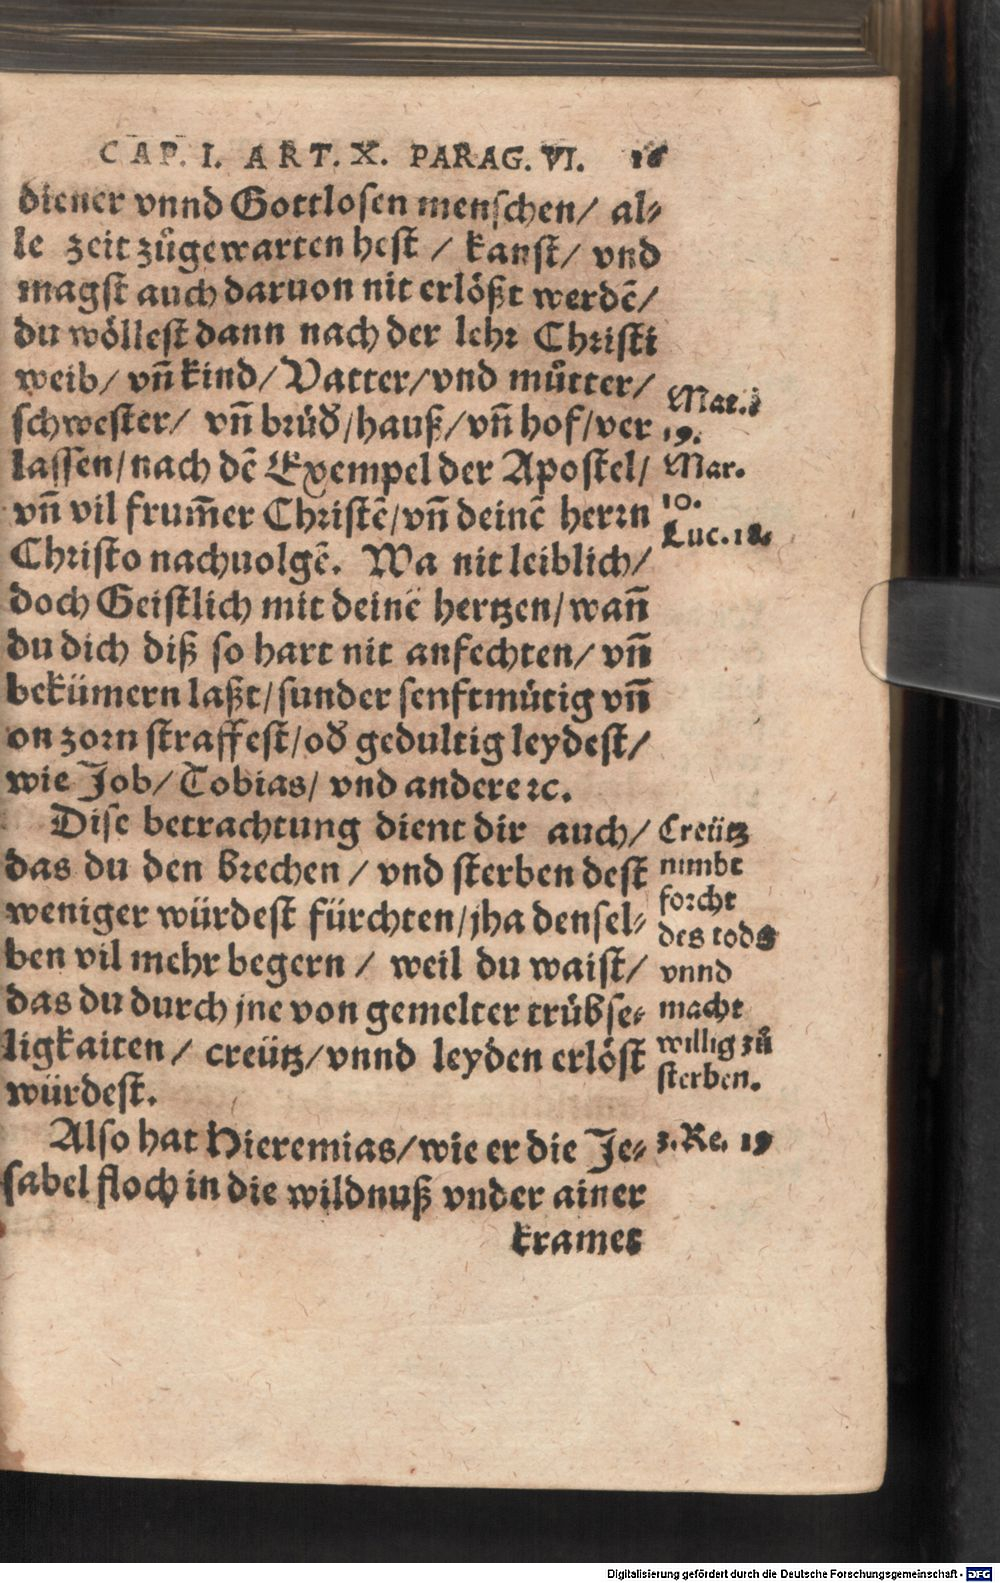 CAP. I. ART. X. PARAG. VI. 16
diener vnnd Gottlosen menschen/ al⸗
le zeit zůgewarten hest / kanst/ vnd
magst auch daruon nit erlößt werdē/
du wöllest dann nach der lehr Christi
weib/ vn̄ kind/ Vatter/ vnd můtter/
schwester/ vn̄ brůd̕/ hauß/ vn̄ hof/ ver
lassen/ nach dē Exempel der Apostel/
vn̄ vil frum̄er Christē/ vn̄ deinē herrn
Christo nachuolgē. Wa nit leiblich/
doch Geistlich mit deinē hertzen/ wan̄
du dich diß so hart nit anfechten/ vn̄
bekümern laßt/ sunder senftmůtig vn̄
on zorn straffest/ od̕ gedultig leydest/
wie Job/ Tobias/ vnd andere ꝛc.
Dise betrachtung dient dir auch/
das du den brechen / vnd sterben dest
weniger würdest fürchten/ jha densel⸗
ben vil mehr begern / weil du waist/
das du durch jne von gemelter trůbse⸗
ligkaiten / creütz/ vnnd leyden erlöst
würdest.
Also hat Hieremias/ wie er die Je⸗
sabel floch in die wildnuß vnder ainer
kramet
Mat.
19.
Mar.
10.
Luc. 18.
Creütz
nimbt
forcht
des tods
vnnd
macht
willig zů
sterben.
3. Re. 19
Digitalisierung gefördert durch die Deutsche Forschungsgemeinschaft - DFG